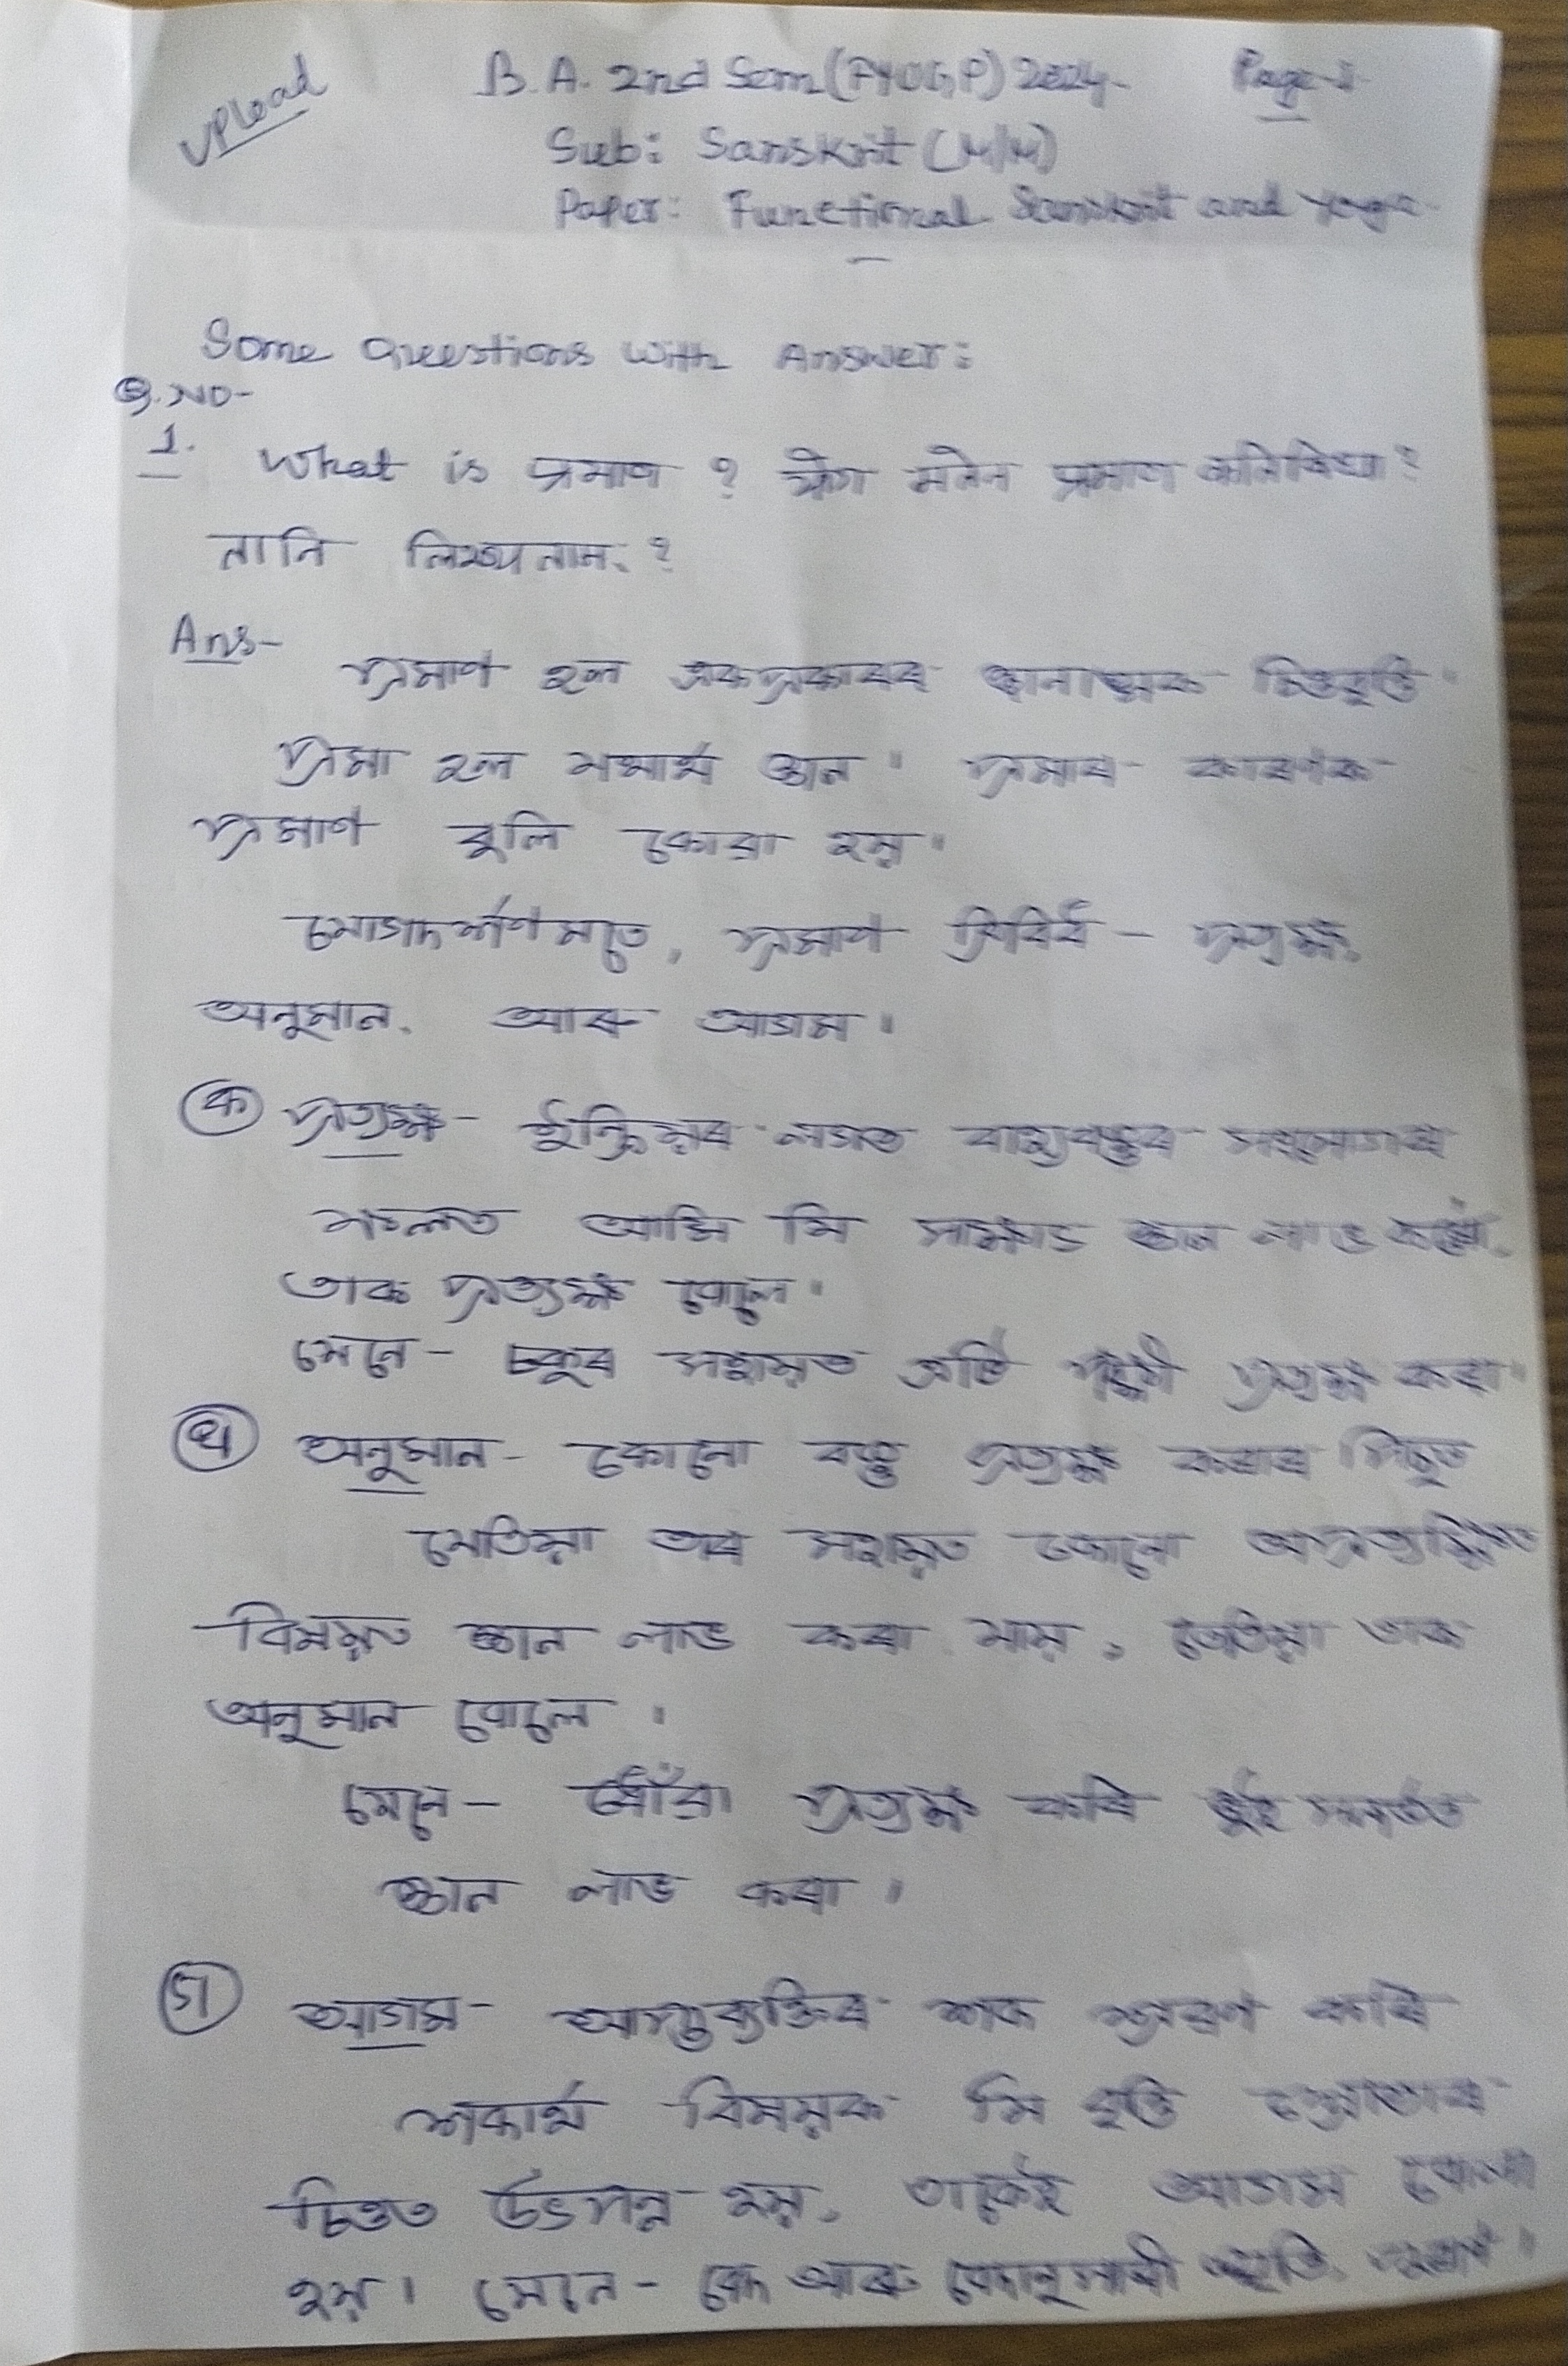 Upload
B.A. 2nd Sem (FYUGP) 2024 Page-1
Sub: Sanskrit (M/M)
Paper: Functional Sanskrit and Yoga
Some Questions with Answer:
Q. NO-
1. What is প্ৰমাণ ? যোগ মতেন প্ৰমাণ কতিবিধা?
তানি লিখ্যতাম্ ?
Ans- প্ৰমাণ হল একপ্ৰকাৰৰ জ্ঞানাত্মক চিত্তবৃত্তি।
প্ৰমা হল যথাৰ্থ জ্ঞান। প্ৰমাৰ কাৰণক
প্ৰমাণ বুলি কোৱা হয়।
যোগদৰ্শণমতে, প্ৰমাণ ত্ৰিবিধ - প্ৰত্যক্ষ,
অনুমান, আৰু আগম।
ক প্ৰত্যক্ষ- ইন্দ্ৰিয়ৰ লগত বাহ্যবস্তুৰ সংযোগৰ
ফলত আমি যি সাক্ষাৎ জ্ঞান লাভ কৰোঁ,
তাক প্ৰত্যক্ষ বোলে।
যেনে- চকুৰ সহায়ত এটি পক্ষী প্ৰত্যক্ষ কৰা।
খ অনুমান- কোনো বস্তু প্ৰত্যক্ষ কৰাৰ পিছত
যেতিয়া তাৰ সহায়ত কোনো
বিষয়ত জ্ঞান লাভ কৰা যায়, তেতিয়া তাক
অনুমান বোলে।
যেনে- ধোঁৱা প্ৰত্যক্ষ কৰি জুই সম্পৰ্কত
জ্ঞান লাভ কৰা।
গ আগম- আপ্তব্যক্তিৰ শব্দ শ্ৰৱণ কৰি
শব্দাৰ্থ বিষয়ক যি বৃত্তি শ্ৰোতাৰ
চিত্তত উৎপন্ন হয়, তাকেই আগম বোলা
হয়। যেনে- বেদ আৰু বেদানুসাৰী স্মৃতি,